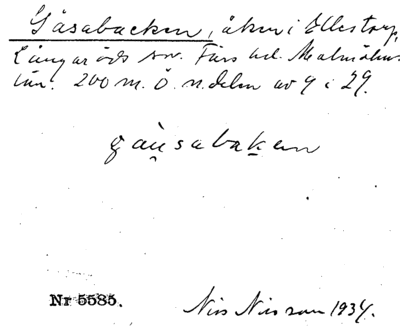 Gåsabacken, åker i Ellestorp,
Långaröds sn. Färs hd. Malmöhus
län. 200 m. ö. n. delen av 4 i 29.
gåu̯sabaḵen
Nr 5585.
Nils Nilsson 1934.